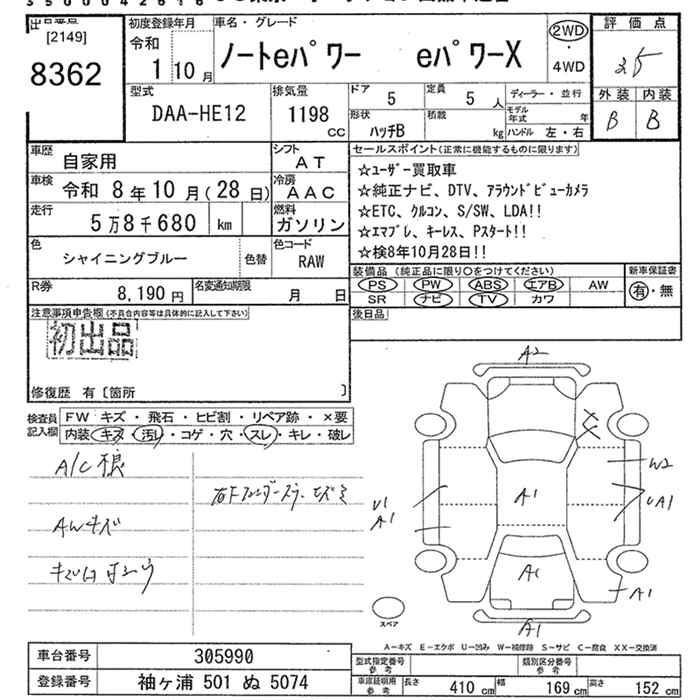 [2149]
8362
初度登録年月
令和
1 10 月
車名・グレード
ノートeパワー eパワーX
2WD
・
4WD
評価点
3.5
外装 内装
B B
型式
DAA-HE12
排気量
1198
cc
ドア 5
定員 5 人
形状 ハッチB
積載 kg
ディーラー・並行
モデル年式 年
ハンドル 左・右
車歴 自家用
シフト AT
車検 令和 8 年 10 月 ( 28 日)
冷房 AAC
走行 5 万 8 千 680 km
燃料 ガソリン
色 シャイニングブルー
色替
色コード RAW
R券 8,190 円
名変通知期限 月 日
セールスポイント(正常に機能するものに限ります)
☆ユーザー買取車
☆純正ナビ、DTV、アラウンドビューカメラ
☆ETC、クルコン、S/SW、LDA!!
☆エマブレ、キーレス、Pスタート!!
☆検8年10月28日!!
装備品(純正品に限り○をつけてください)
PS PW ABS エアB AW
SR ナビ TV カワ
新車保証書
有・無
後日品
注意事項申告欄(不具合内容等は具体的に記入して下さい)
初出品
修復歴 有 〔箇所 〕
検査員記入欄
FW キズ・飛石・ヒビ割・リペア跡・×要
内装 キズ・汚レ・コゲ・穴・スレ・キレ・破レ
A/C
AWキズ
A2
W2
U1
A1
A1
UA1
A1
A1
A1
スペア
A-キズ E-エクボ U-凹み W-補修跡 S-サビ C-腐食 XX-交換済
車台番号 305990
登録番号 袖ヶ浦 501 ぬ 5074
型式指定番号 参考
類別区分番号 参考
車庫証明用 参考
長さ 410 cm
幅 169 cm
高さ 152 cm